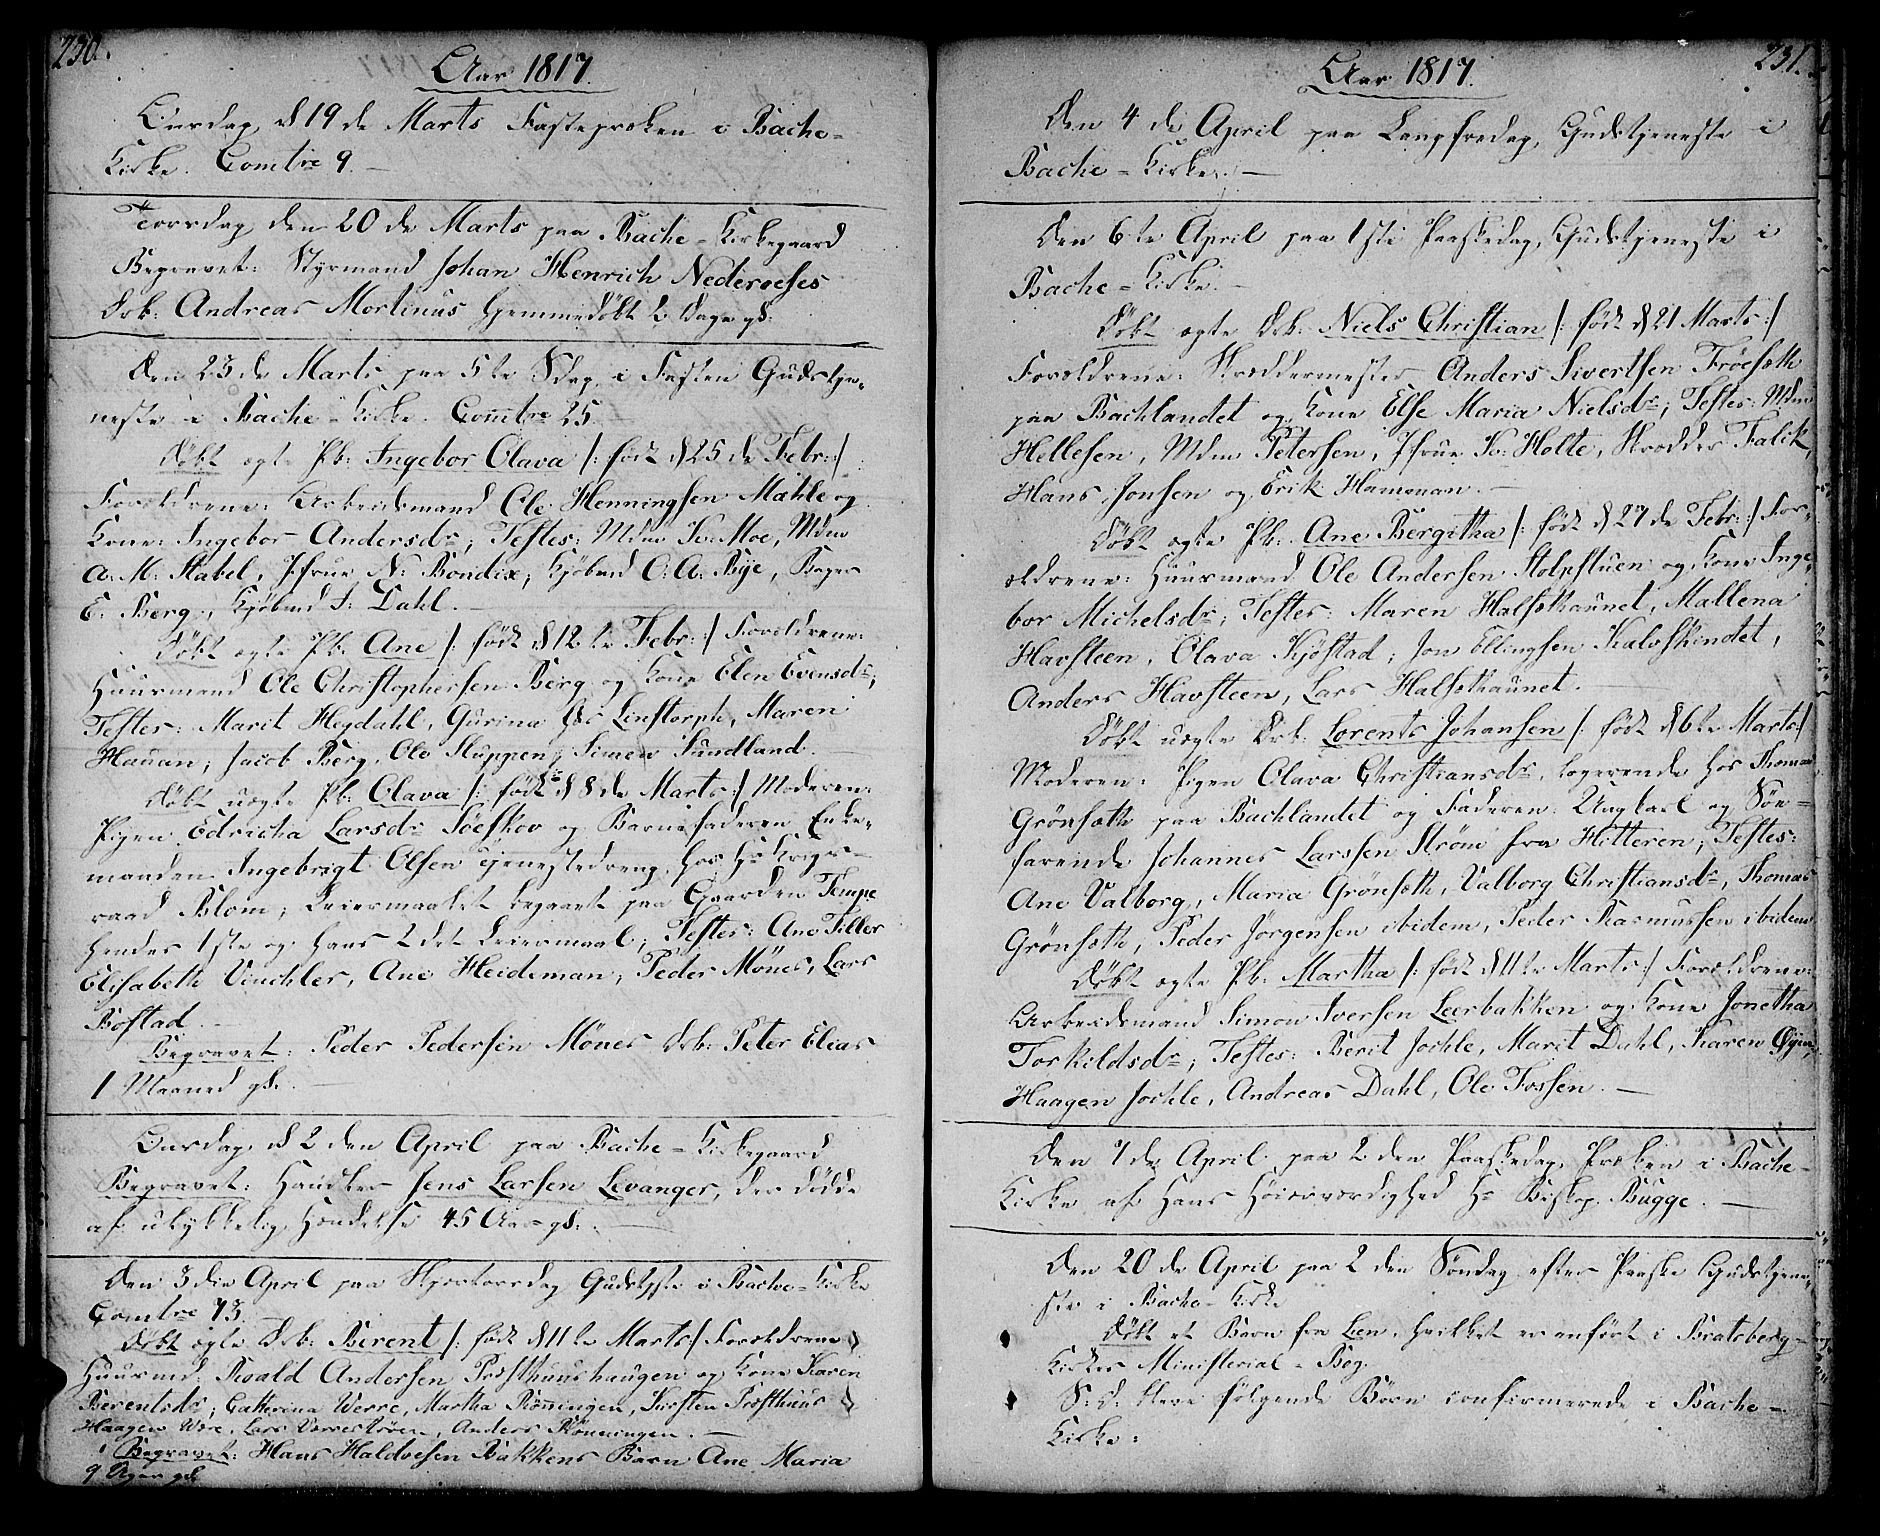 230.
Aar 1817.
Onsdag d 19 de Marts Fastepræken i Bache-
Kirke. Comtre 9.
Torsdag den 20 de Marts paa Bache-Kirkegaard
Begravet: Styrmand Johan Henrich Nederoeses
Drb: Andreas Mortinus hjemmedøbt 2 Dage gl:
Den 23 de Marts paa 5 te Sdag i Fasten Gudstje-
neste i Bache-Kirke. Comtre 25.
Døbt ægte Pb: Ingebor Olava /: født d 25 de Febr: :/
Forældrene: Arbeidsmand Ole Henningsen Mæhle og
Kone: Ingebor Andersdr; Testes: Mdm K: Moe, Mdm
A: M: Stabel, Jfrue N: Bondix; Kjøbmd O: A: Bye, Bager
E. Berg, Kjøbmd J: Dahl.
Døbt ægte Pb: Ane /: født d 12 te Febr: :/ Forældrene:
Huusmand Ole Christophersen Berg og Kone Elen Evensdr;
Testes: Marit Hegdahl, Gurina Linstorph, Maren
Hauan; Jacob Berg, Ole Sluppen, Simen Sundland.
Døbt uægte Pb: Olava /: født d 8 de Marts :/ Moderen:
Pigen Edricha Larsdr Søeskov og Barnefaderen Enke-
manden Ingebrigt Olsen tjenestedreng hos Hr Krigs-
raad Blom; Leiermaalet begaaet paa Gaarden Tempe
hendes 1ste og hans 2det Leiermaal; Testes: Ane Tiller
Elisabeth Vinchler, Ane Heideman; Peder Mønes, Lars
Bostad.
Begravet: Peder Pedersen Mønes Drb: Peter Elias
1 Maaned gl:
Onsdag d 2 den April paa Bache-Kirkegaard
Begravet: Handler Jens Larsen Levanger, der dødde
af ulykkelig Hændelse 45 Aar gl:
Den 3 die April paa Skjærtorsdag Gudstjste i Bache-Kirke
Comtre 73.
Døbt ægte Drb: Berent /: født d 11 te Marts :/ Forældrene
Huusmd: Roald Andersen Presthuushaugen og Kone Karen
Berentsdr; Catherina Werre, Martha Rønningen, Kirsten Presthuus
Haagen Were, Lars Verrestøren, Anders Rønningen.
Begravet: Hans Haldoesen Bakkens Barn Ane Maria
9 Uger gl:
231.
Aar 1817.
Den 4 de April paa Langfredag, Gudstjeneste i
Bache-Kirke.
Den 6 te April paa 1ste Paaskedag, Gudstjeneste i
Bache-Kirke.
Døbt ægte Drb: Niels Christian /: født d 21 Marts :/
Forældrene: Skræddermester Anders Sivertsen Trøeseth
paa Bachlandet og Kone Else Maria Nielsdr; Testes: Mdm
Hellesen, Mdm Petersen, Jfrue K: Holte, Skrædder Falik,
Hans Jonsen og Erik Hammann.
Døbt ægte Pb: Ane Bergitha /: født d 27 de Febr: :/ For-
ældrene: Huusmand Ole Andersen Stolpstuen og Kone Inge-
bor Michelsdr; Testes: Maren Halsethaunet, Mallena
Havsteen, Olava Kjøstad; Jon Ellingsen Kalvskindet,
Anders Havsteen, Lars Halsethaunet.
Døbt uægte Drb: Lorents Johansen /: født d 6 te Marts :/
Moderen: Pigen Olava Christiansdr, logerende hos Thomas
Grønsæth paa Bachlandet og Faderen: Ungkarl og Søe-
farende Johannes Larssen Strøm fra Hitteren; Testes:
Ane Valborg, Maria Grønsæth, Valborg Christiansdr, Thomas
Grønsæth, Peder Jørgensen ibidem, Peder Rasmussen ibidem
Døbt ægte Pb: Martha /: født d 11 te Marts :/ Forældrene:
Arbeidsmand Simon Iversen Leerbakken og Kone Jonetha
Torkildsdr; Testes: Berit Jochle, Marit Dahl, Karen Øyen,
Haagen Jochle, Andreas Dahl, Ole Fossen.
Den 7 de April paa 2 den Paaskedag, Præken i Bache-
Kirke af Hans Høiærværdighed Hr Biskop Bugge.
Den 20 de April paa 2 den Søndag efter Paaske Gudstjene-
ste i Bache-Kirke
Døbt et Barn fra Leen, hvilket er anført i Bratsberg-
Kirkes Ministerial-Bog.
S: D: bleve følgende Børn confirmerede i Bache-
Kirke: